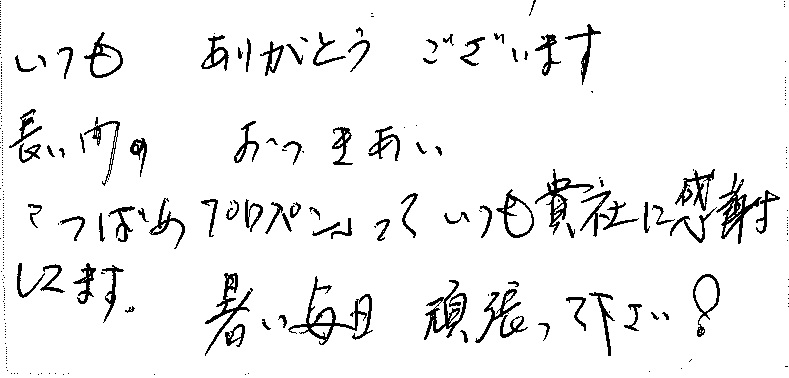 いつも ありがとう ございます
長い間の おつきあい
"つばめプロパン"って いつも貴社に感謝
してます。 暑い毎日 頑張って下さい!